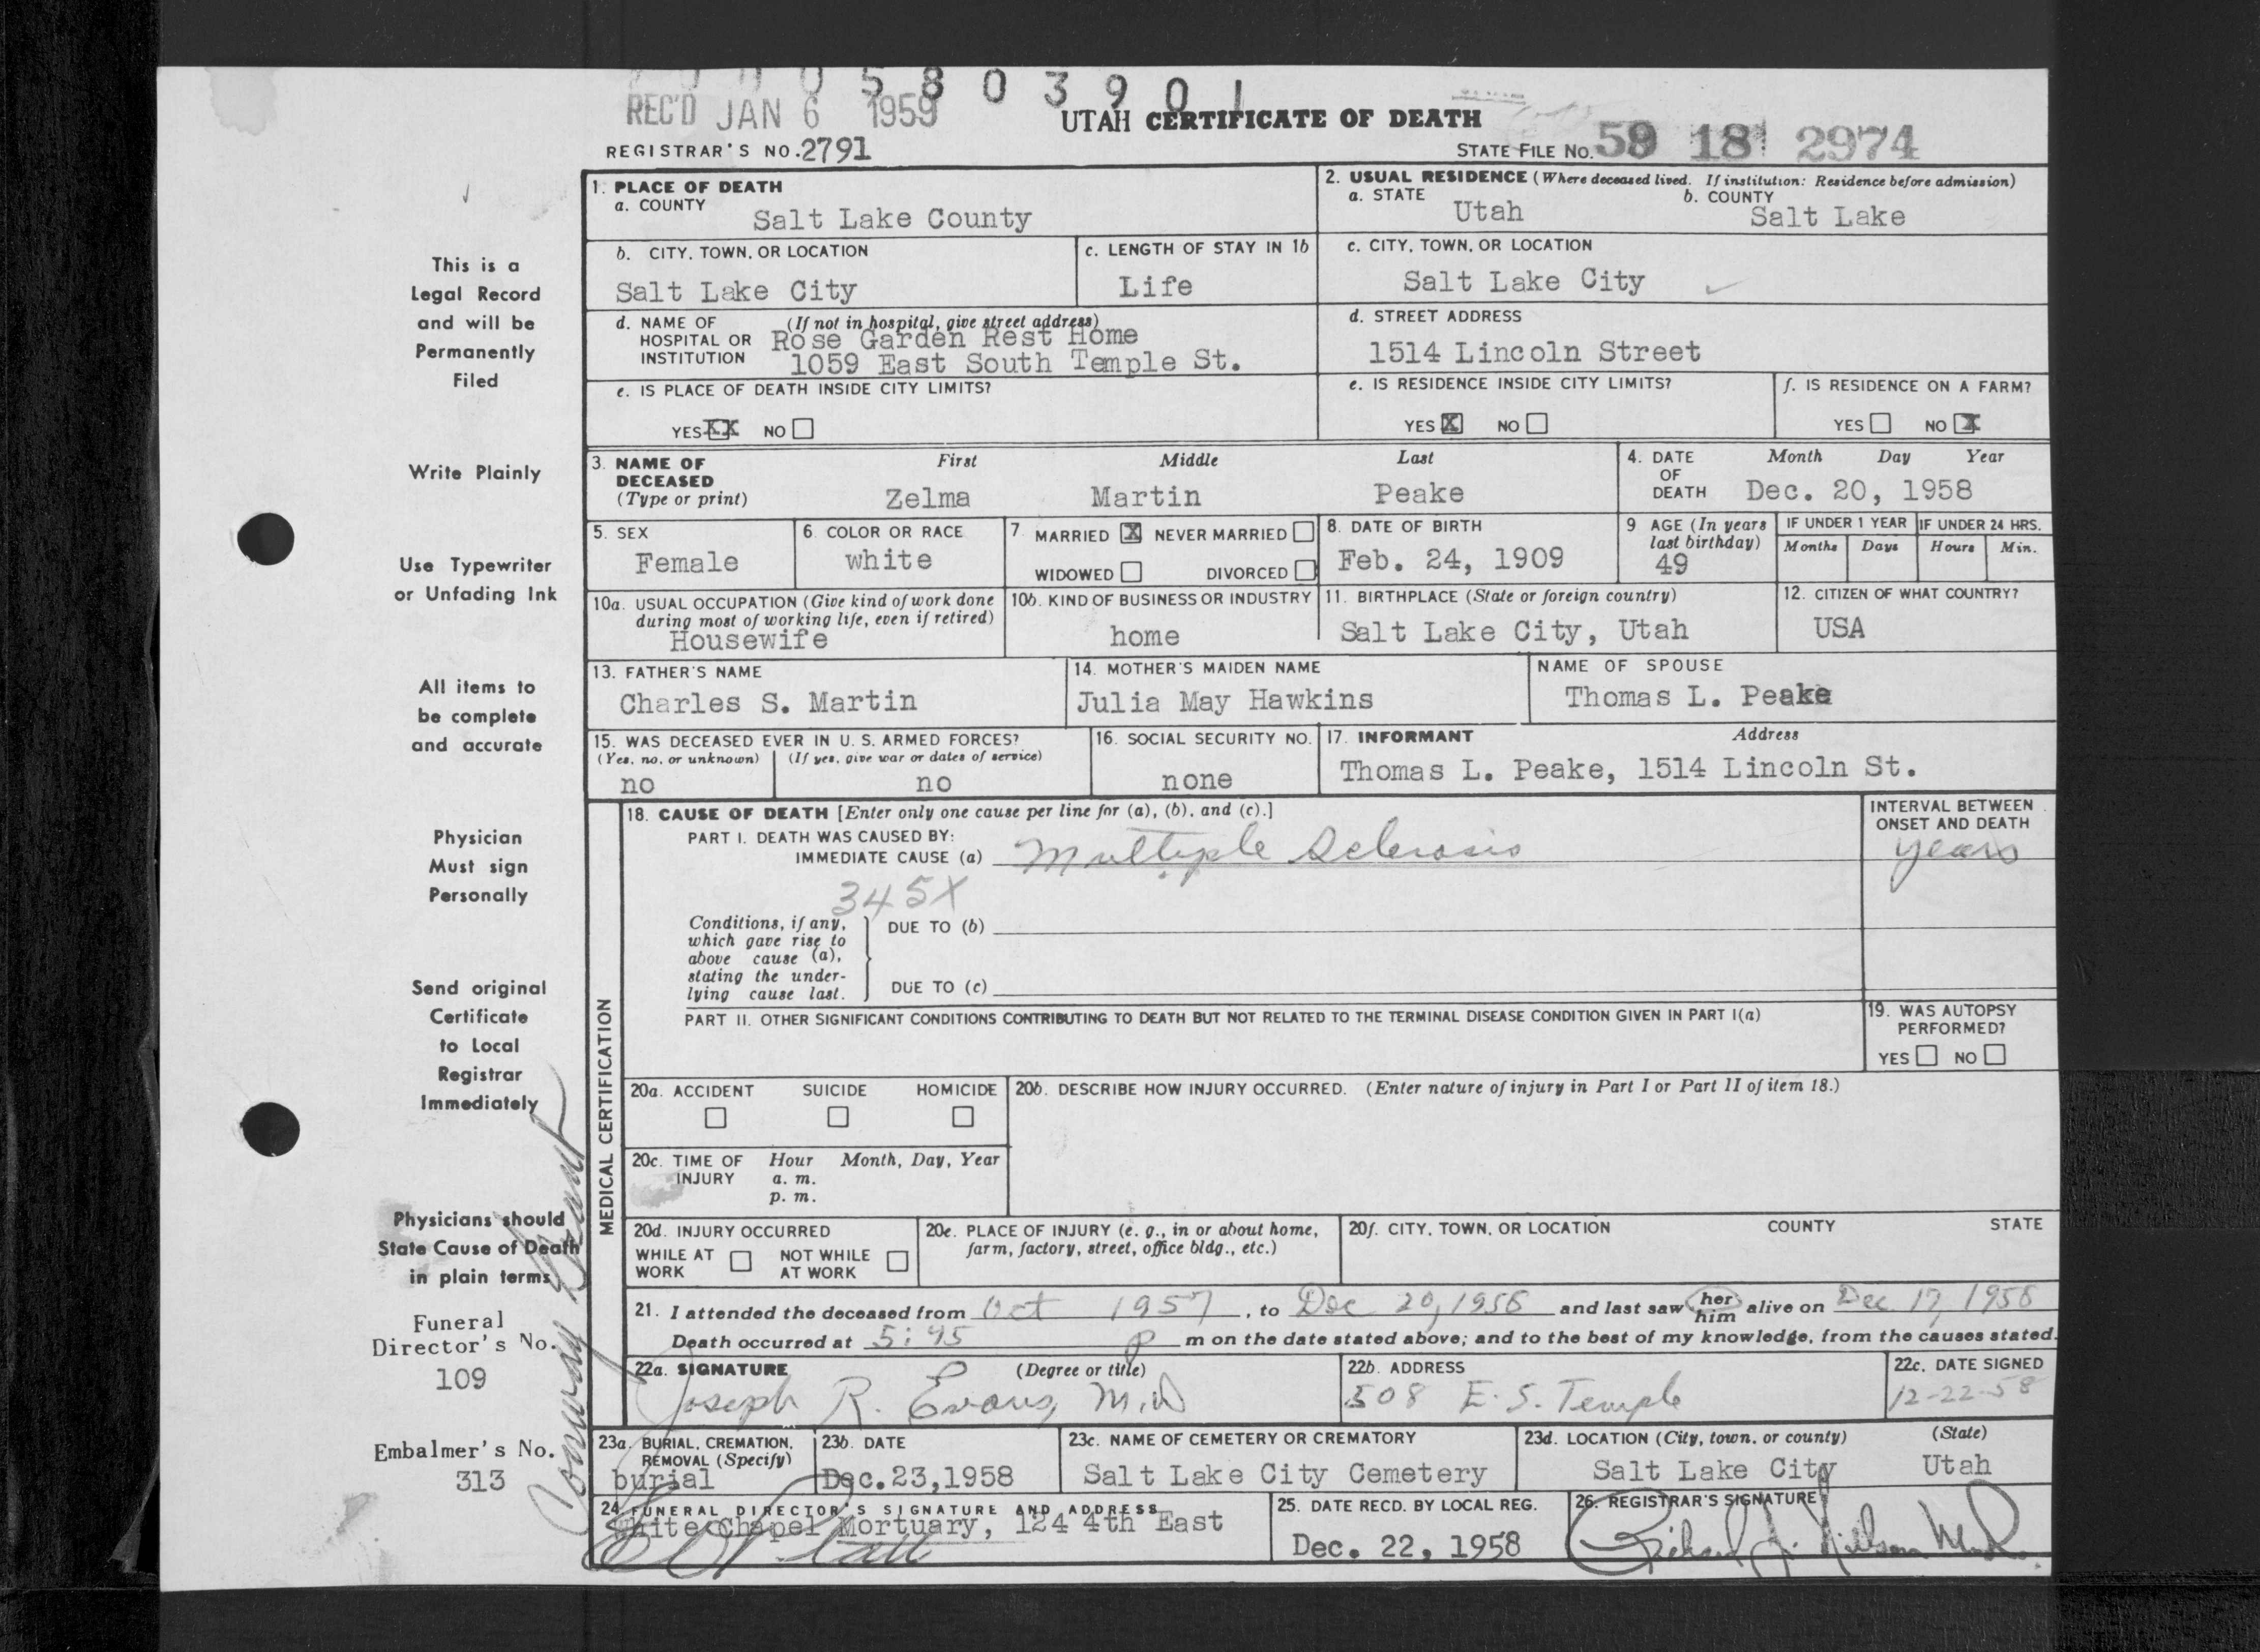 5 8 0 3 9 0 1
REC'D JAN 6 1959
UTAH CERTIFICATE OF DEATH
REGISTRAR'S NO. 2791
STATE FILE No. 59 18 2974
This is a
Legal Record
and will be
Permanently
Filed
Write Plainly
Use Typewriter
or Unfading Ink
All items to
be complete
and accurate
Physician
Must sign
Personally
Send original
Certificate
to Local
Registrar
Immediately
Physicians should
State Cause of Death
in plain terms
Funeral
Director's No.
109
Embalmer's No.
313
1. PLACE OF DEATH
a. COUNTY
Salt Lake County
2. USUAL RESIDENCE (Where deceased lived. If institution: Residence before admission)
a. STATE Utah b. COUNTY Salt Lake
b. CITY, TOWN, OR LOCATION
Salt Lake City
c. LENGTH OF STAY IN 1b
Life
c. CITY, TOWN, OR LOCATION
Salt Lake City
d. NAME OF HOSPITAL OR INSTITUTION (If not in hospital, give street address)
Rose Garden Rest Home
1059 East South Temple St.
d. STREET ADDRESS
1514 Lincoln Street
e. IS PLACE OF DEATH INSIDE CITY LIMITS?
YES XX NO
e. IS RESIDENCE INSIDE CITY LIMITS?
YES X NO
f. IS RESIDENCE ON A FARM?
YES NO X
3. NAME OF DECEASED (Type or print)
First Middle Last
Zelma Martin Peake
4. DATE OF DEATH Month Day Year
Dec. 20, 1958
5. SEX
Female
6. COLOR OR RACE
white
7. MARRIED X NEVER MARRIED
WIDOWED DIVORCED
8. DATE OF BIRTH
Feb. 24, 1909
9 AGE (In years last birthday)
49
IF UNDER 1 YEAR IF UNDER 24 HRS.
Months Days Hours Min.
10a. USUAL OCCUPATION (Give kind of work done during most of working life, even if retired)
Housewife
10b. KIND OF BUSINESS OR INDUSTRY
home
11. BIRTHPLACE (State or foreign country)
Salt Lake City, Utah
12. CITIZEN OF WHAT COUNTRY?
USA
13. FATHER'S NAME
Charles S. Martin
14. MOTHER'S MAIDEN NAME
Julia May Hawkins
NAME OF SPOUSE
Thomas L. Peake
15. WAS DECEASED EVER IN U. S. ARMED FORCES?
(Yes, no, or unknown) (If yes, give war or dates of service)
no no
16. SOCIAL SECURITY NO.
none
17. INFORMANT Address
Thomas L. Peake, 1514 Lincoln St.
MEDICAL CERTIFICATION
18. CAUSE OF DEATH [Enter only one cause per line for (a), (b), and (c).]
PART I. DEATH WAS CAUSED BY:
IMMEDIATE CAUSE (a) Multiple Sclerosis
INTERVAL BETWEEN ONSET AND DEATH
years
345X
Conditions, if any, which gave rise to above cause (a), stating the under-lying cause last.
DUE TO (b)
DUE TO (c)
PART II. OTHER SIGNIFICANT CONDITIONS CONTRIBUTING TO DEATH BUT NOT RELATED TO THE TERMINAL DISEASE CONDITION GIVEN IN PART I(a)
19. WAS AUTOPSY PERFORMED?
YES NO
20a. ACCIDENT SUICIDE HOMICIDE
20b. DESCRIBE HOW INJURY OCCURRED. (Enter nature of injury in Part I or Part II of item 18.)
20c. TIME OF INJURY Hour Month, Day, Year
a. m.
p. m.
20d. INJURY OCCURRED
WHILE AT WORK NOT WHILE AT WORK
20e. PLACE OF INJURY (e. g., in or about home, farm, factory, street, office bldg., etc.)
20f. CITY, TOWN, OR LOCATION COUNTY STATE
21. I attended the deceased from Oct 1957, to Dec 20, 1958 and last saw her him alive on Dec 17, 1958
Death occurred at 5:45 p m on the date stated above; and to the best of my knowledge, from the causes stated.
22a. SIGNATURE (Degree or title)
Joseph R. Evans, M.D
22b. ADDRESS
508 E. S. Temple
22c. DATE SIGNED
12-22-58
23a. BURIAL, CREMATION, REMOVAL (Specify)
burial
23b. DATE
Dec. 23, 1958
23c. NAME OF CEMETERY OR CREMATORY
Salt Lake City Cemetery
23d. LOCATION (City, town, or county) (State)
Salt Lake City Utah
24. FUNERAL DIRECTOR'S SIGNATURE AND ADDRESS
White Chapel Mortuary, 124 4th East
25. DATE RECD. BY LOCAL REG.
Dec. 22, 1958
26. REGISTRAR'S SIGNATURE